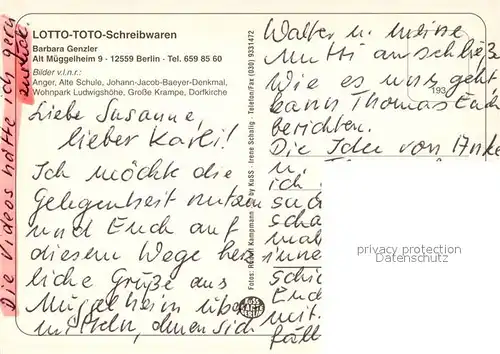 LOTTO-TOTO-Schreibwaren
Barbara Genzler
Alt Müggelheim 9 - 12559 Berlin - Tel. 659 85 60
Bilder v.l.n.r.:
Anger, Alte Schule, Johann-Jacob-Baeyer-Denkmal,
Wohnpark Ludwigshöhe, Große Krampe, Dorfkirche
Liebe Susanne,
lieber Karli!
Ich möchte die
Gelegenheit nutzen
und Euch auf
diesem Wege herz
liche Grüße aus
Müggelheim über
mitteln, denen sich
Walter u. meine
Mutti anschließ
Wie es uns geht
kann Thomas Euch
berichten.
Die Idee von Anke
u.
ich
such
scha
mal
innen
schi
Eud
mit.
fäll
Die Videos hätte ich gern
zurück.
Fotos: Ralph Kampmann by KoSS - Irene Schalig - Telefon/Fax (030) 9331472
193
KOSS
KARTE
BERLIN
privacy protection
Datenschutz